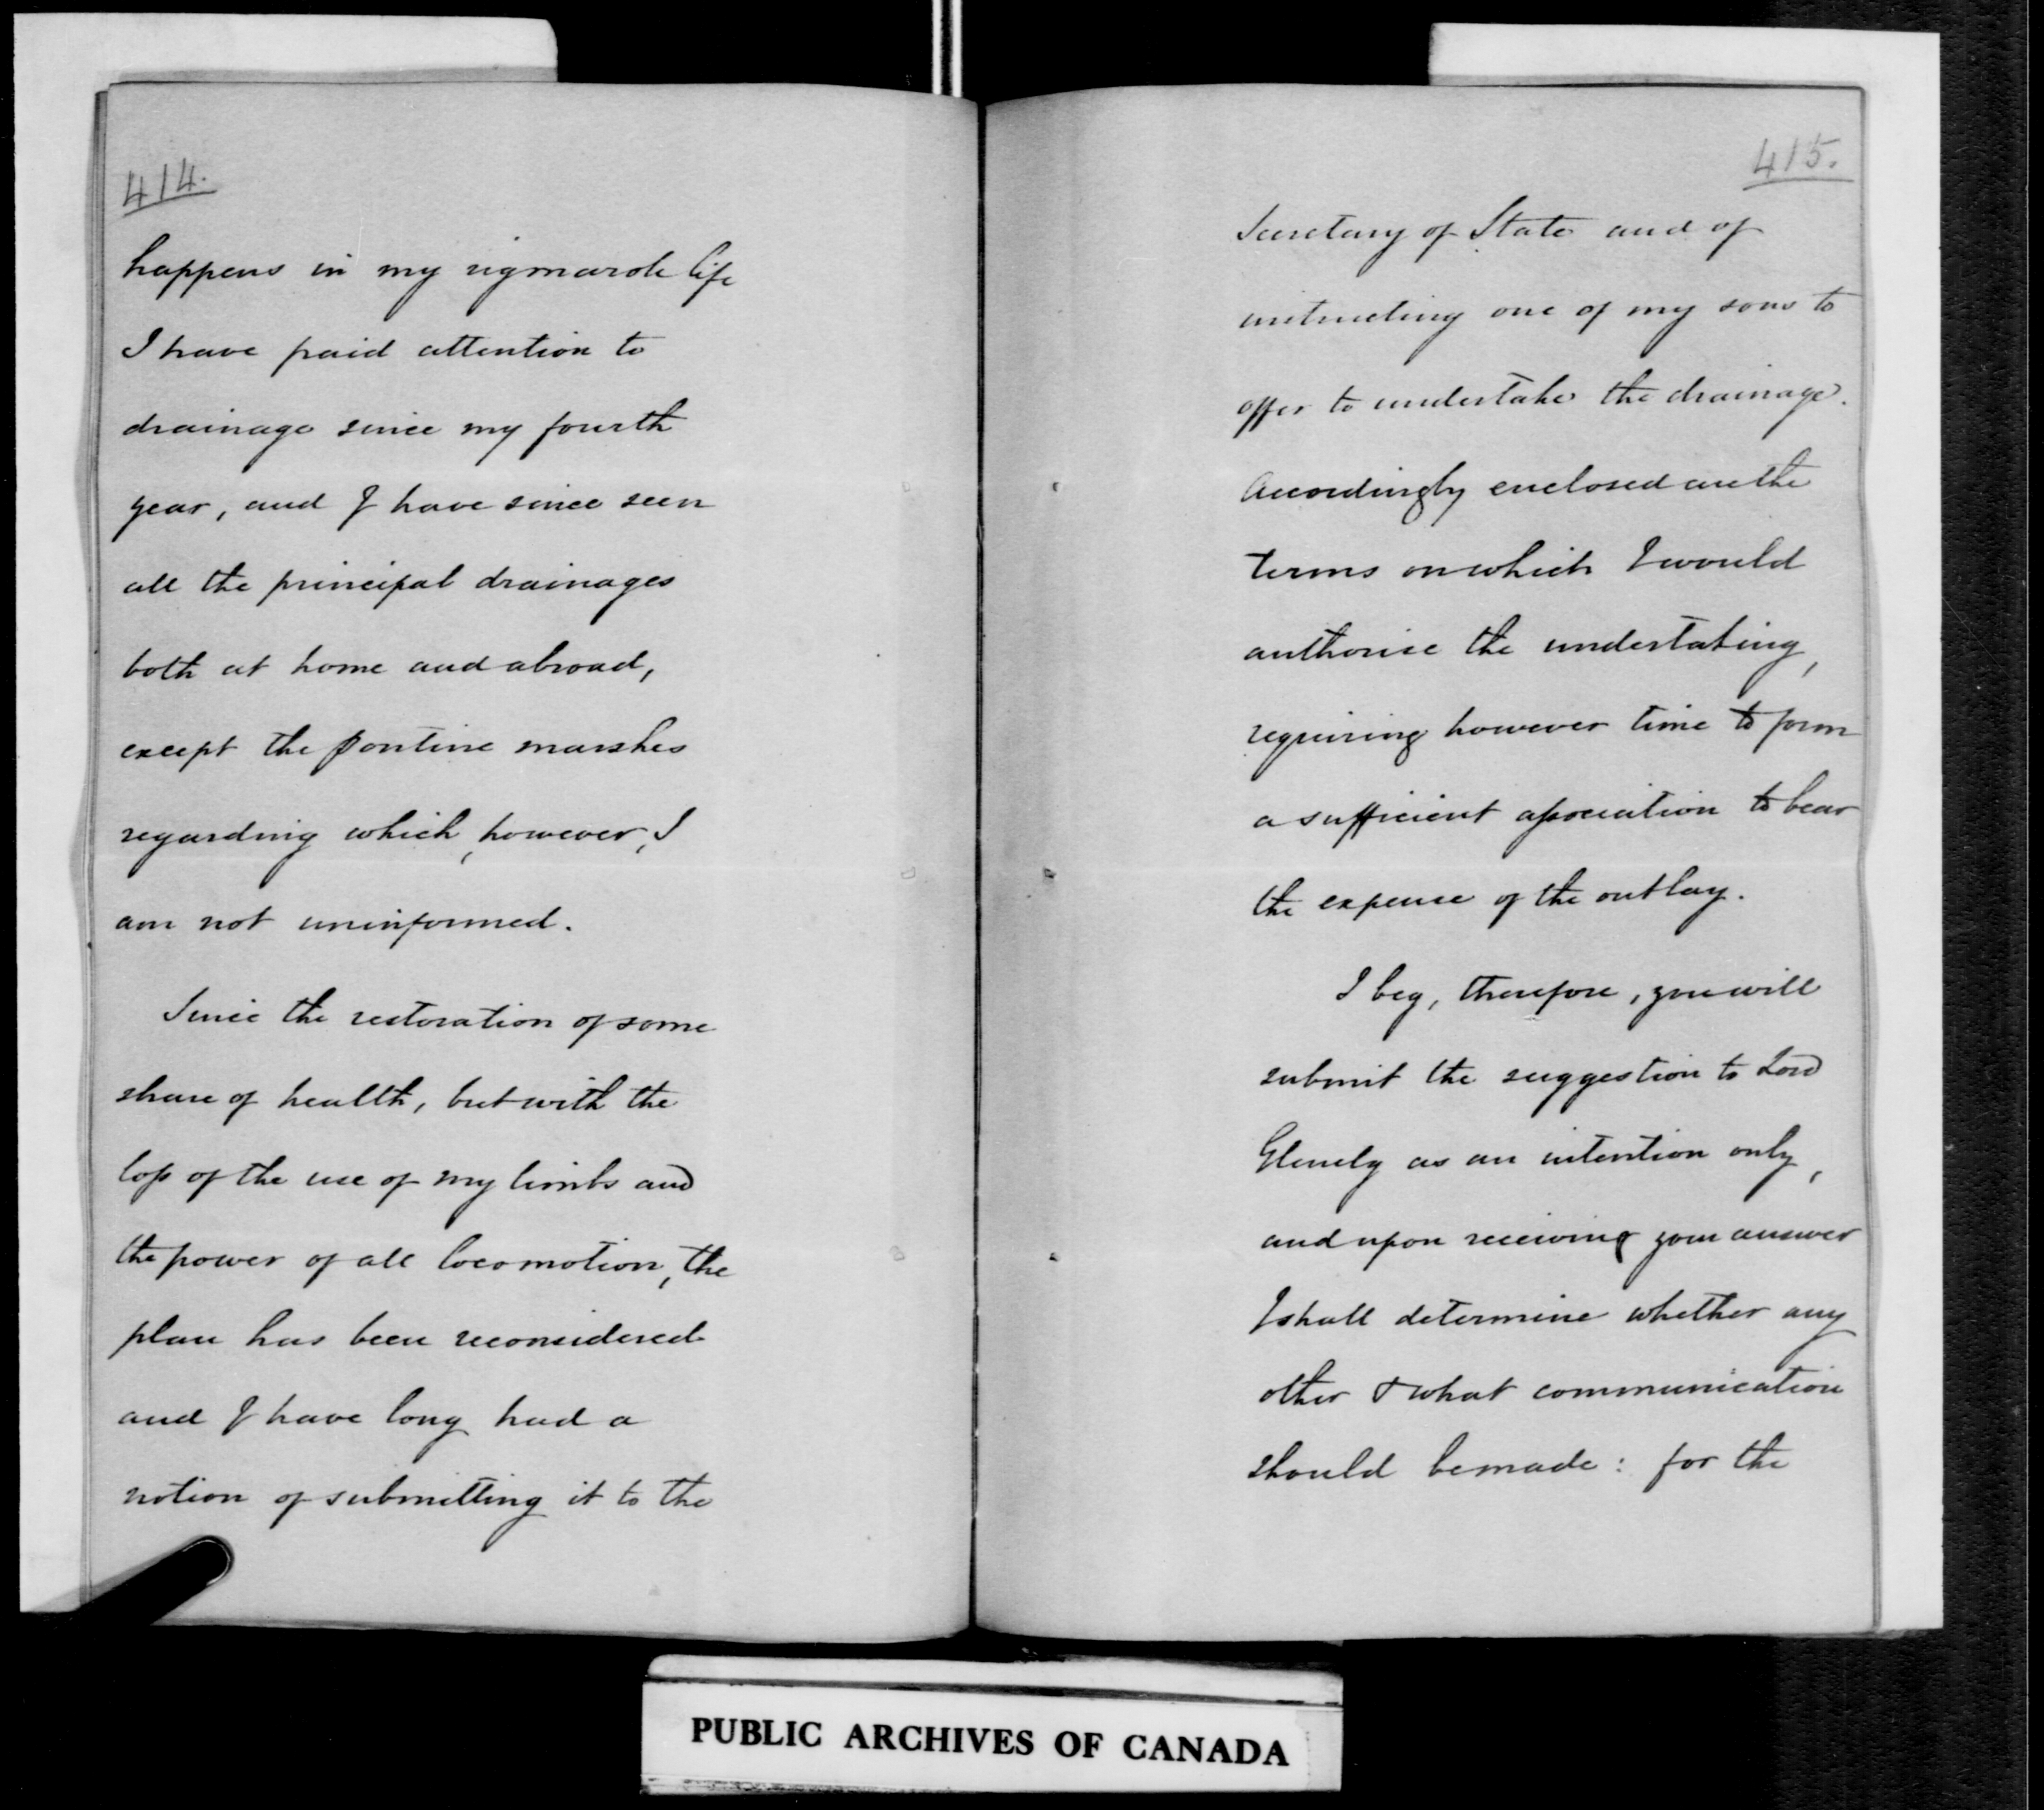 414.
happens in my rigmarole life
I have paid attention to
drainage since my fourth
year, and I have since seen
all the principal drainages
both at home and abroad,
except the Pontine marshes
regarding which, however, I
am not uninformed.
Since the restoration of some
share of health, but with the
loss of the use of my limbs and
the power of all locomotion, the
plan has been reconsidered
and I have long had a
notion of submitting it to the
415.
Secretary of State and of
instructing one of my sons to
offer to undertake the drainage.
Accordingly enclosed are the
terms on which I would
authorise the undertaking,
requiring however time to form
a sufficient association to bear
the expense of the outlay.
I beg, therefore, you will
submit the suggestion to Lord
Glenelg as an intention only,
and upon receiving your answer
I shall determine whether any
other & what communication
should be made: for the
PUBLIC ARCHIVES OF CANADA